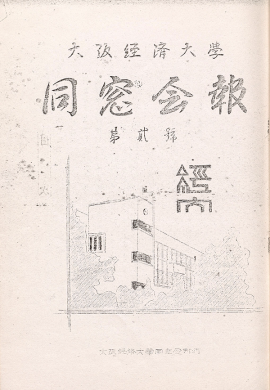 大阪経済大學
同窓会報
第貳號
経大